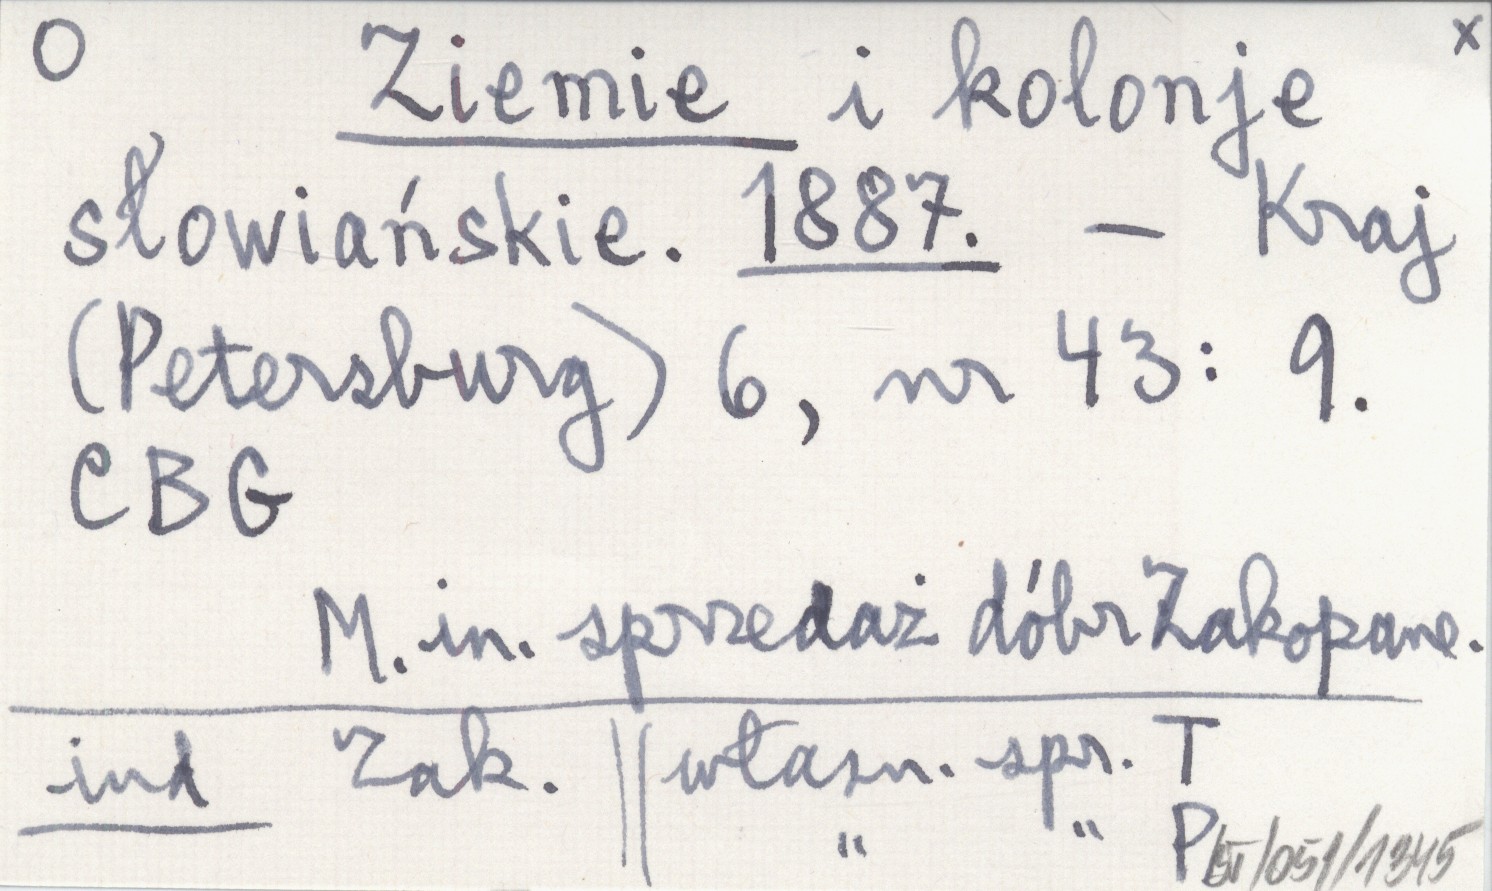 O Ziemie i kolonje x
słowiańskie. 1887. — Kraj
(Petersburg) 6, nr 43: 9.
CBG
M. in. sprzedaż dóbr Zakopane.
ind Zak. || własn. spr. T
" " P
/051/1345